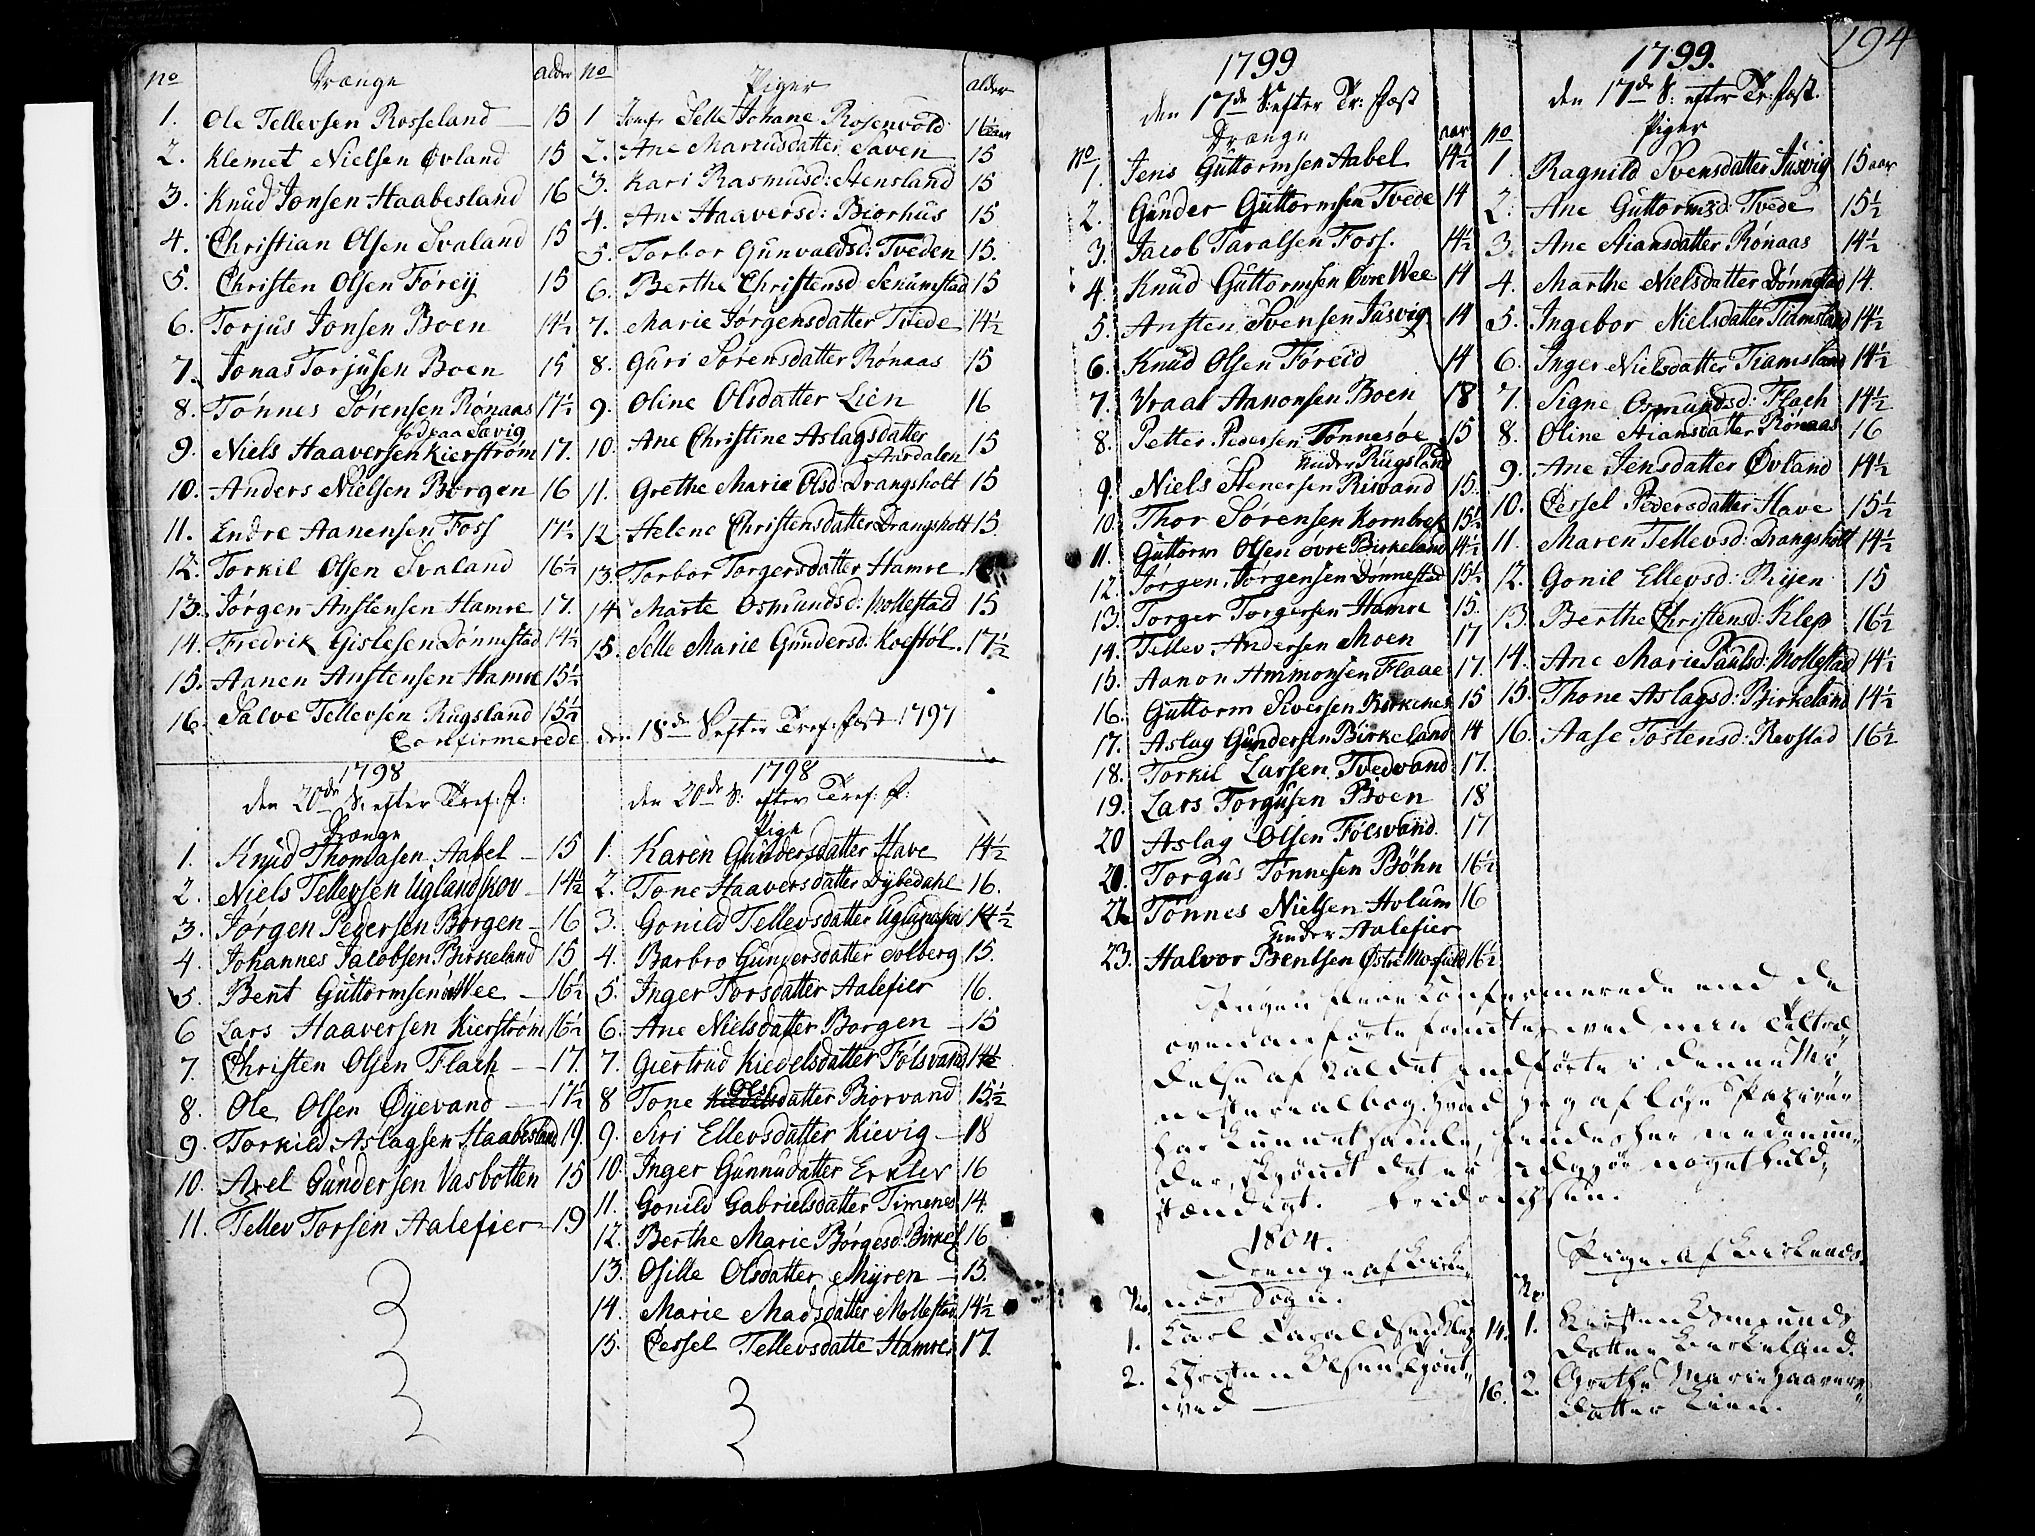 no Drænge alder
1. Ole Tellevsen Rosseland 15
2. Klemet Nielsen Øvland 15
3. Knud Jonsen Haabesland 16
4. Christian Olsen Svaland 15
5. Christen Olsen Førey 15
6. Torjus Jonsen Boen 14½
7. Jonas Torjusen Boen 15
8. Tönnes Sörensen Rónaas 17½
fød paa Savig
9. Niels Haaversen Kierstrøm 17.
10. Anders Nielsen Borgen 16
11. Endre Aanensen Foss 17½
12. Torkil Olsen Svaland 16½
13. Jørgen Anstensen Hamre 17.
14. Fredrik Gislesen Dónnestad 14½
15. Aanen Anstensen Hamre 15½
16. Salve Tellevsen Rugsland 15½
no Piger alder
1 Jomfr Sille Johane Rosenvold 16½ aar
2. Ane Mariusdatter Saven 15
3. Kari Rasmusd: Stensland 15
4. Ane Haaversd: Biorhus 15
5. Torbor Gunvaldsd: Tveden 15.
6. Berthe Christensd Senumstad 15
7. Marie Jörgensdatter Tvede 14½
8. Guri Sörensdatter Rónaas 15
9. Oline Olsdatter Lien 16
10. Ane Christine Aslagsdatter 15
Aasdalen
11. Grethe Marie Olsd: Drangsholt 15
12 Helene Christensdatter Drangsholt 15.
13. Torbor Torgersdatter Hamre
14 Marte Osmundsd: Mollestad 15
15. Sille Marie Gundersd: Koestöl. 17½
Confirmerede den 18de S. efter Tref: fest 1797
1798
den 20de S: efter Tref: f:
Drænge
1. Knud Thomasen Aabel 15
2. Niels Tellevsen Uglandskov 14½
3. Jørgen Pedersen Borgen 16
4. Johannes Jacobsen Birkeland 15
5. Bent Guttormsen Wee 16½
6 Lars Haaversen Kierstrøm 16½
7. Christen Olsen Flach 17.
8. Ole Olsen Øyevand 17½
9. Torkild Aslagsen Haabesland 19.
10. Axel Gundersen Vasbotten 15
11. Tellev Torsen Aalefier 19
1798
den 20de S: efter Tref: f:
Pige
1. Karen Gundersdatter Have 14½
2. Tone Haaversdatter Dybedahl 16.
3. Gonild Tellevsdatter Uglandskov 14½
4. Barbro Gundersdatter Solberg 15.
5. Inger Torsdatter Aalefier 16.
6. Ane Nielsdatter Borgen 15
7. Giertrud Kiedelsdatter Fólsvand 14½
8 Tone Olsdatter Biorvand 15½
9. Siri Ellevsdatter Kievig 18
10. Inger Gunnudatter Erklev 16
11. Gonild Gabrielsdatter Timenes 14.
12. Berthe Marie Börgesd: Birkel 16
13. Osille Olsdatter Myren 15.
14. Marie Madsdatter Mollestad 14½
15. Cessel Tellevsdatte Hamre 17.
194
1799
den 17de S: efter Tr: fæst
Drænge aar
No
1. Jens Guttormsen Aabel 14½
2. Gunder Guttormsen Tvede 14
3. Jacob Taralsen Foss. 14½
4. Knud Guttormsen Øvre Wee 14
5. Ansten Svensen Jusvig 14
6. Knud Olsen Føreid 14
7. Vraal Aanonsen Boen 18
8. Petter Pedersen Tonnesøe 15
under Rugsland
9. Niels Stenersen Risvand 15.
10. Thor Sörensen Kornbrek 15½
11. Guttorm Olsen øvre Birkeland 14½
12. Jørgen Jørgensen Dónnestad 15½
13. Torger Torgersen Hamre 15.
14. Tellev Andersen Moen 17
15. Aanon Ammonsen Flaae 17.
16. Guttorm Siversen Birkenes 15
17. Aslag Gundersen Birkeland 14
18. Torkil Larsen Tvedvand 17.
19. Lars Torgusen Boen 18
20 Aslag Olsen Følsvand. 17
21. Torgus Tønnesen Böhn 16½
22 Tønnes Nielsen Holum 16
under Aalefier
23. Halvor Bentsen Østre Mosfield 16½
1799.
den 17de S: efter Tr: fæst.
no Piger
1. Ragnild Svensdatter Jusvig 15 aar
2. Ane Guttormsd: Tvede 15½
3. Ane Stiansdatter Rónaas 14½
4. Marthe Nielsdatter Dónnestad 14.
5. Ingebor Nielsdatter Tiamsland 14½
6. Inger Nielsdatter Tiamsland 14½
7. Signe Osmundsd: Flach 14½
8. Oline Stiansdatter Rónaas 16
9. Ane Jensdatter Øvland 14½
10. Cessel Pedersdatter Have 15½
11. Maren Tellevsd: Drangsholt 14½
12. Gonil Ellevsd: Rijen 15
13. Berthe Christensd: Klep 16½
14. Ane Marie Paulsd: Mollestad 14½
15. Thone Aslagsd: Birkeland 14½
16. Aase Tostensd: Revstad 16½
Ingen flere Confirmerede end de
ovenanførte fandtes ved min Tiltræ-
delse af Kaldet indførte i denne Mi-
nisterialbog. Hvad jeg af løse Papirer
har kunnet samle, findes her neden un-
der, skjøndt det ei udgjør noget fuld-
stændigt. Fridrichsen.
1804.
Drenge af Birke-
næs Sogn.
No
1. Carl Haraldsen Klep 14.
2. Christen Olsen Kjøst-
ved 16.
Piger af Birkenæs
No
1. Kirsten Osmunds
datter Birkeland.
2. Grethe Marie Haavers-
datter Lien.